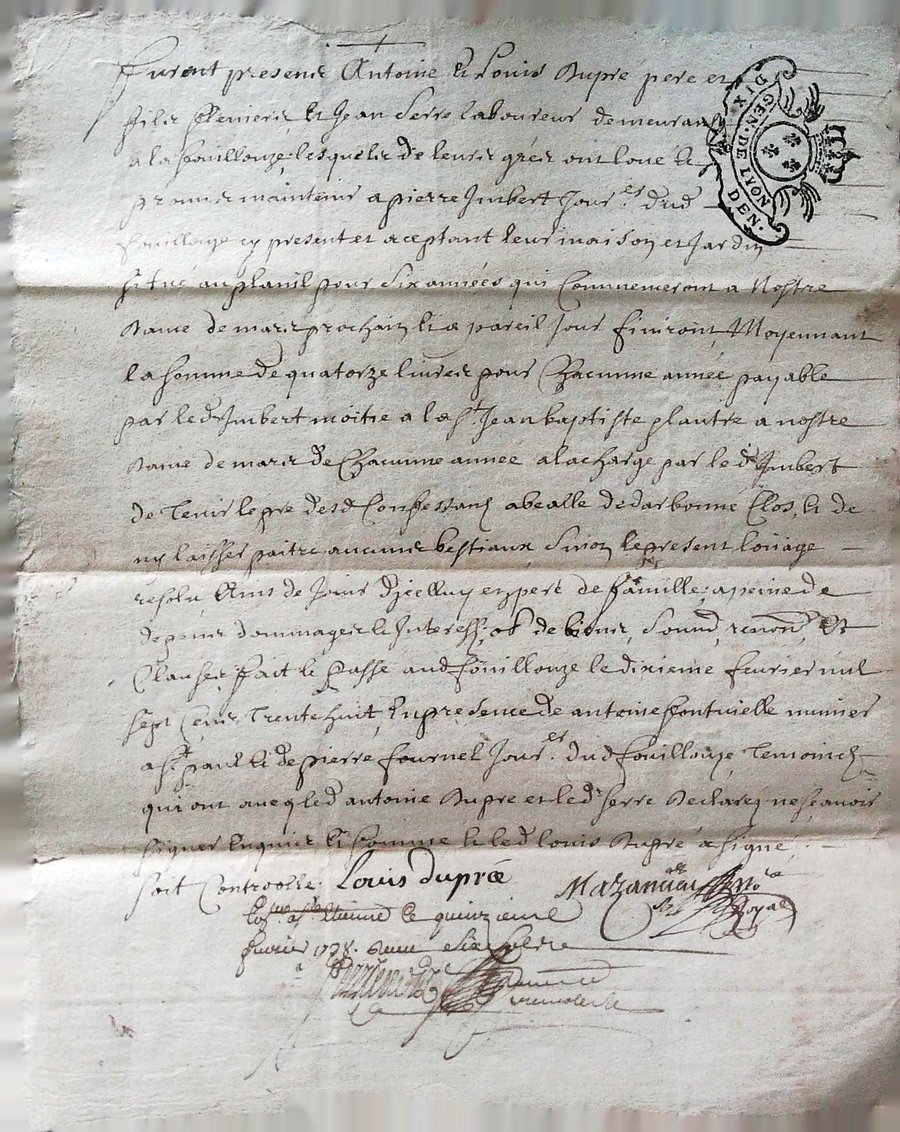 furent presents Antoine et Louis dupré pere et
fils et Jean Serre laboureur demeurans
a la fouillouze lesquels de leurs grés ont loué et
promis maintenir a pierre Imbert Jour.er dud
fouillouze cy present et aceptant leur maison et Jardin
situé au planil pour six années qui Commenceront a Nostre
dame de mars prochain et a pareil Jour finiront, Moyennant
la somme de quatorze livres pour Chacunne année payable
par led Imbert moitié a la St. Jean baptiste et l'autre a nostre
dame de mars de Chacunne année a la charge par led Imbert
de Tenir le pré desd Confessans Clos, et de
ny laisser paitre aucuns bestiaux, Sinon le present loüage
resolu de Jouir d'jcelluy en pere de famille, a peine de
depens dommages et Interests, ob. de biens, renon., et
Clauses, fait et Passé aud fouillouze le dixieme fevrier mil
sept Cens Trente huit, En presence de antoine munier
a St. paul et de pierre fournel Jour.er dud fouillouze Temoins
qui ont avecq led antoine dupre et led serre declaré ne sçavoir
signer Enquis et sommé et led louis dupré a signé
soit Controollé. Louis dupré
No.re Royal
a St. Etienne le quinzieme
fevrier 1738.
GEN. DE LYON
DIX. DEN.